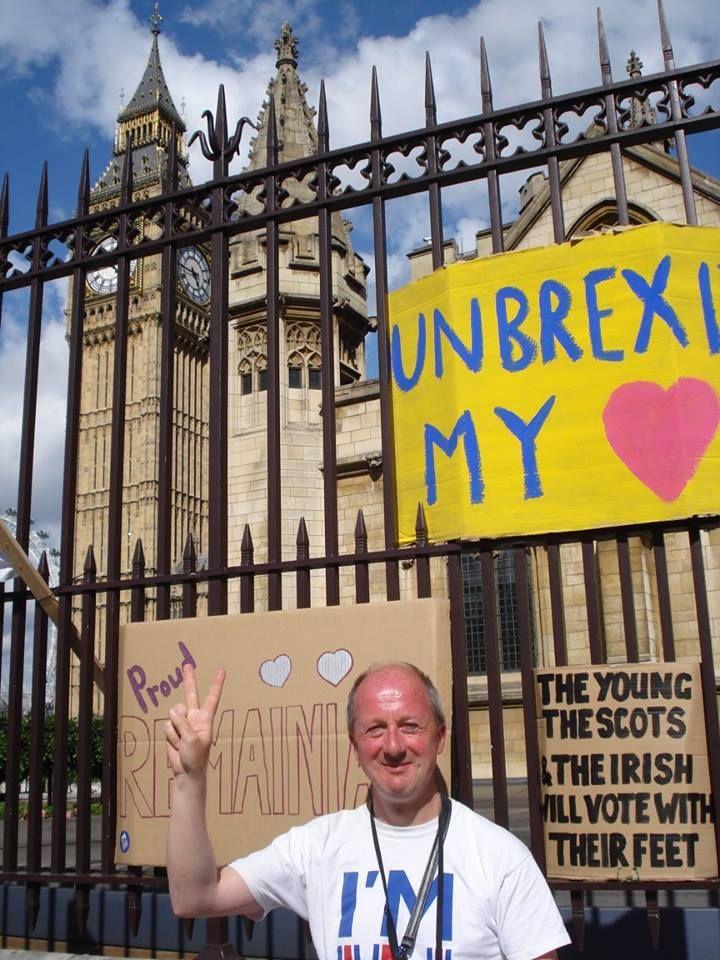 UNBREXI
MY
Proud
THE YOUNG
THE SCOTS
& THE IRISH
WILL VOTE WITH
THEIR FEET
I'M